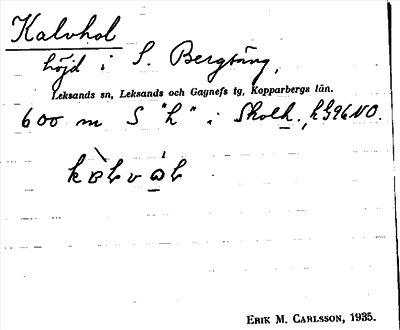 Kalvhol
höjd i S. Bergsäng,
Leksands sn, Leksands och Gagnefs tg, Kopparbergs län.
600 m S "h" i Skolh.,
ERIK M. CARLSSON, 1935.